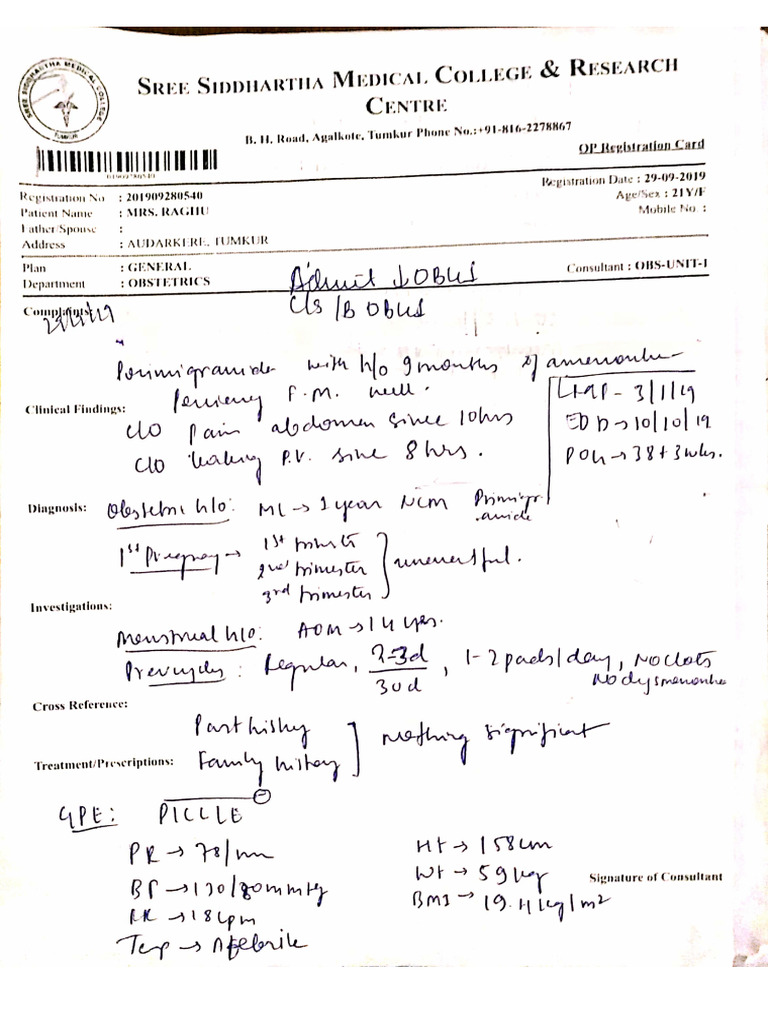 SREE SIDDHARTHA MEDICAL COLLEGE & RESEARCH
CENTRE
SREE SIDDHARTHA MEDICAL COLLEGE
TUMKUR
B. H. Road, Agalkote, Tumkur Phone No.:+91-816-2278867
OP Registration Card
Registration No : 201909280540
Registration Date : 29-09-2019
Patient Name : MRS. RAGHU
Age/Sex : 21Y/F
Father/Spouse :
Mobile No. :
Address : AUDARKERE, TUMKUR
Plan : GENERAL
Consultant : OBS-UNIT-1
Department : OBSTETRICS
Admit
C/S/B
Complaints:
Primigravida with h/o 9 months of amenorrhea
F.M. well.
LMP - 3/1/19
Clinical Findings:
C/O pain abdomen since 10hrs
EDD → 10/10/19
C/O leaking P.V. since 8 hrs.
POG → 38+3 wks.
Diagnosis:
Obstetric h/o: ML → 1 year NCM Primigr-
avida
1st Pregnancy → 1st trimester
2nd trimester
uneventful.
3rd trimester
Investigations:
Menstrual h/o: AOM → 14 yrs.
Prev cycles : Regular, 2-3d
30d
, 1-2 pads/day, No clots
No dysmenorrhea
Cross Reference:
Past history
Nothing significant
Treatment/Prescriptions:
Family history
GPE: PICCLE
PR → 78/min
Ht → 158cm
BP → 120/80mmHg
Wt → 59kg
Signature of Consultant
RR → 18cpm
BMI → 19.4kg/m²
Temp → Afebrile